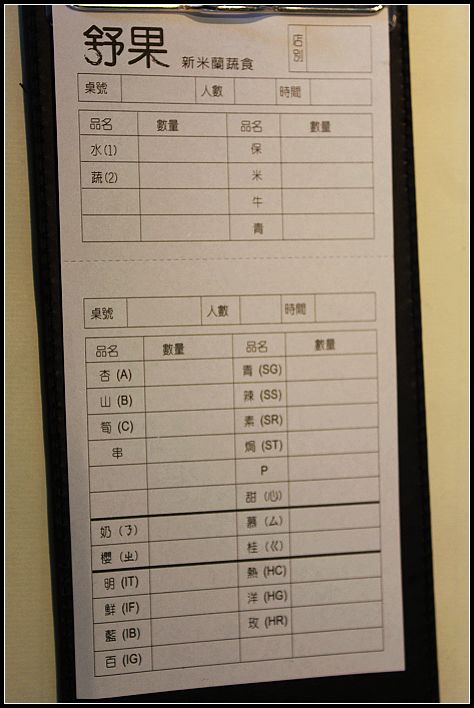 舒果 新米蘭蔬食 店別
桌號 人數 時間
品名 數量 品名 數量
水(1) 保
蔬(2) 米
牛
青
桌號 人數 時間
品名 數量 品名 數量
杏 (A) 青 (SG)
山 (B) 辣 (SS)
筍 (C) 素 (SR)
串 焗 (ST)
P
甜 (心)
奶 (ㄋ) 慕 (ㄙ)
櫻 (ㄓ) 桂 (ㄍ)
明 (IT) 熱 (HC)
鮮 (IF) 洋 (HG)
藍 (IB) 玫 (HR)
百 (IG)